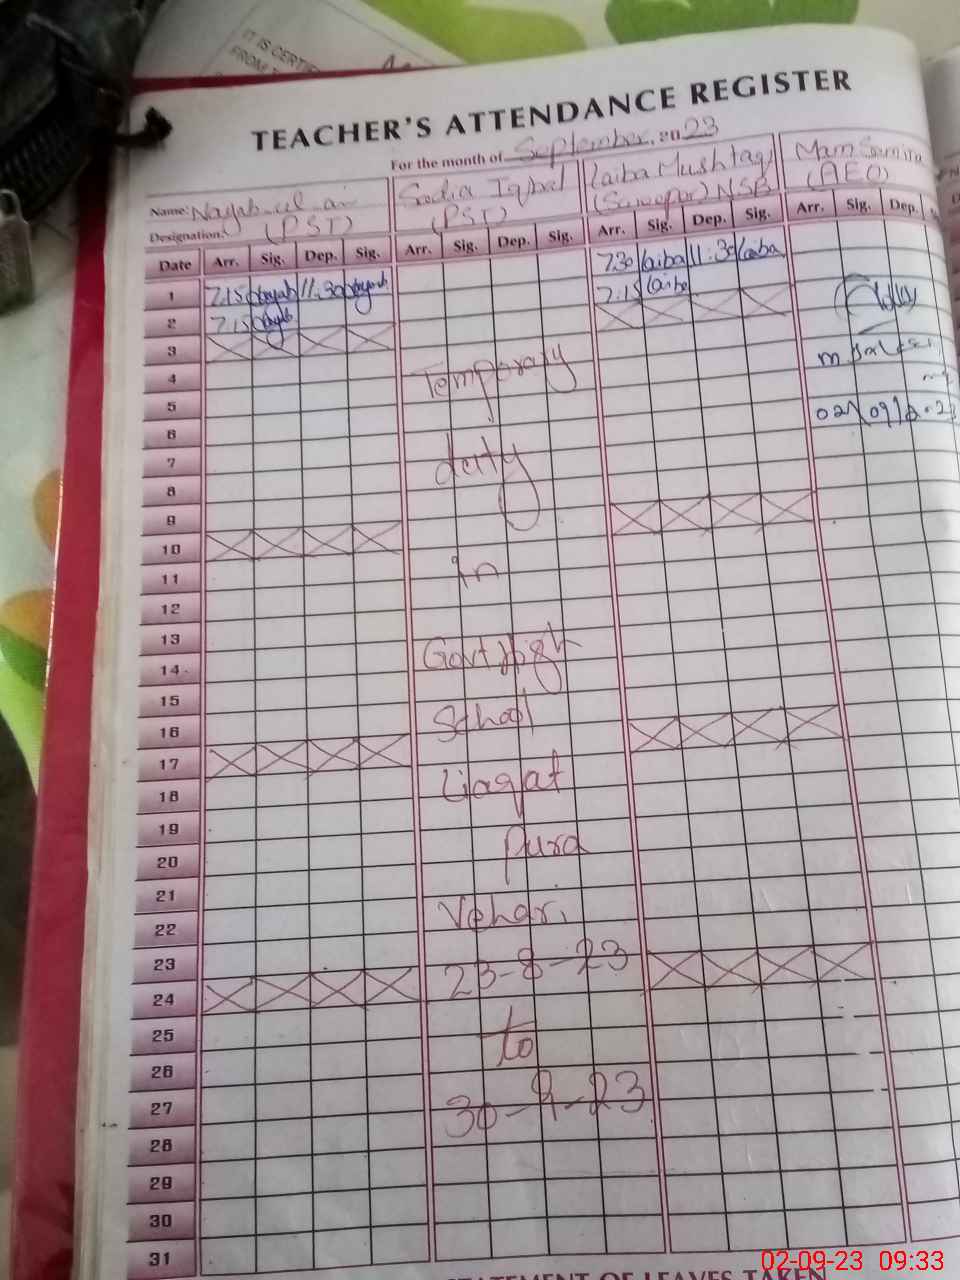 IT IS CERTIF
FROM
TEACHER'S ATTENDANCE REGISTER
For the month of September, 2023
Name: Nayab-ul-ain Sadia Iqbal Laiba Mushtaq Mam Samina
Designation: (PST) (PST) (Sweeper) NSB (AEO)
Date Arr. Sig. Dep. Sig. Arr. Sig. Dep. Sig. Arr. Sig. Dep. Sig. Arr. Sig. Dep.
1 7.15 Nayab 11:30 Nayab 7.30 laiba 11:30 laiba
2 7.15 Nayab 7:15 laiba
3
4 Temporary
5 02/09/2023
6
7 duty
8
9
10
11 in
12
13
14 Govt high
15
16 School
17
18 Liaqat
19
20 Pura
21
22 Vehari
23
24 23-8-23
25
26 to
27
28 30-9-23
29
30
31
STATEMENT OF LEAVES TAKEN
02-09-23 09:33